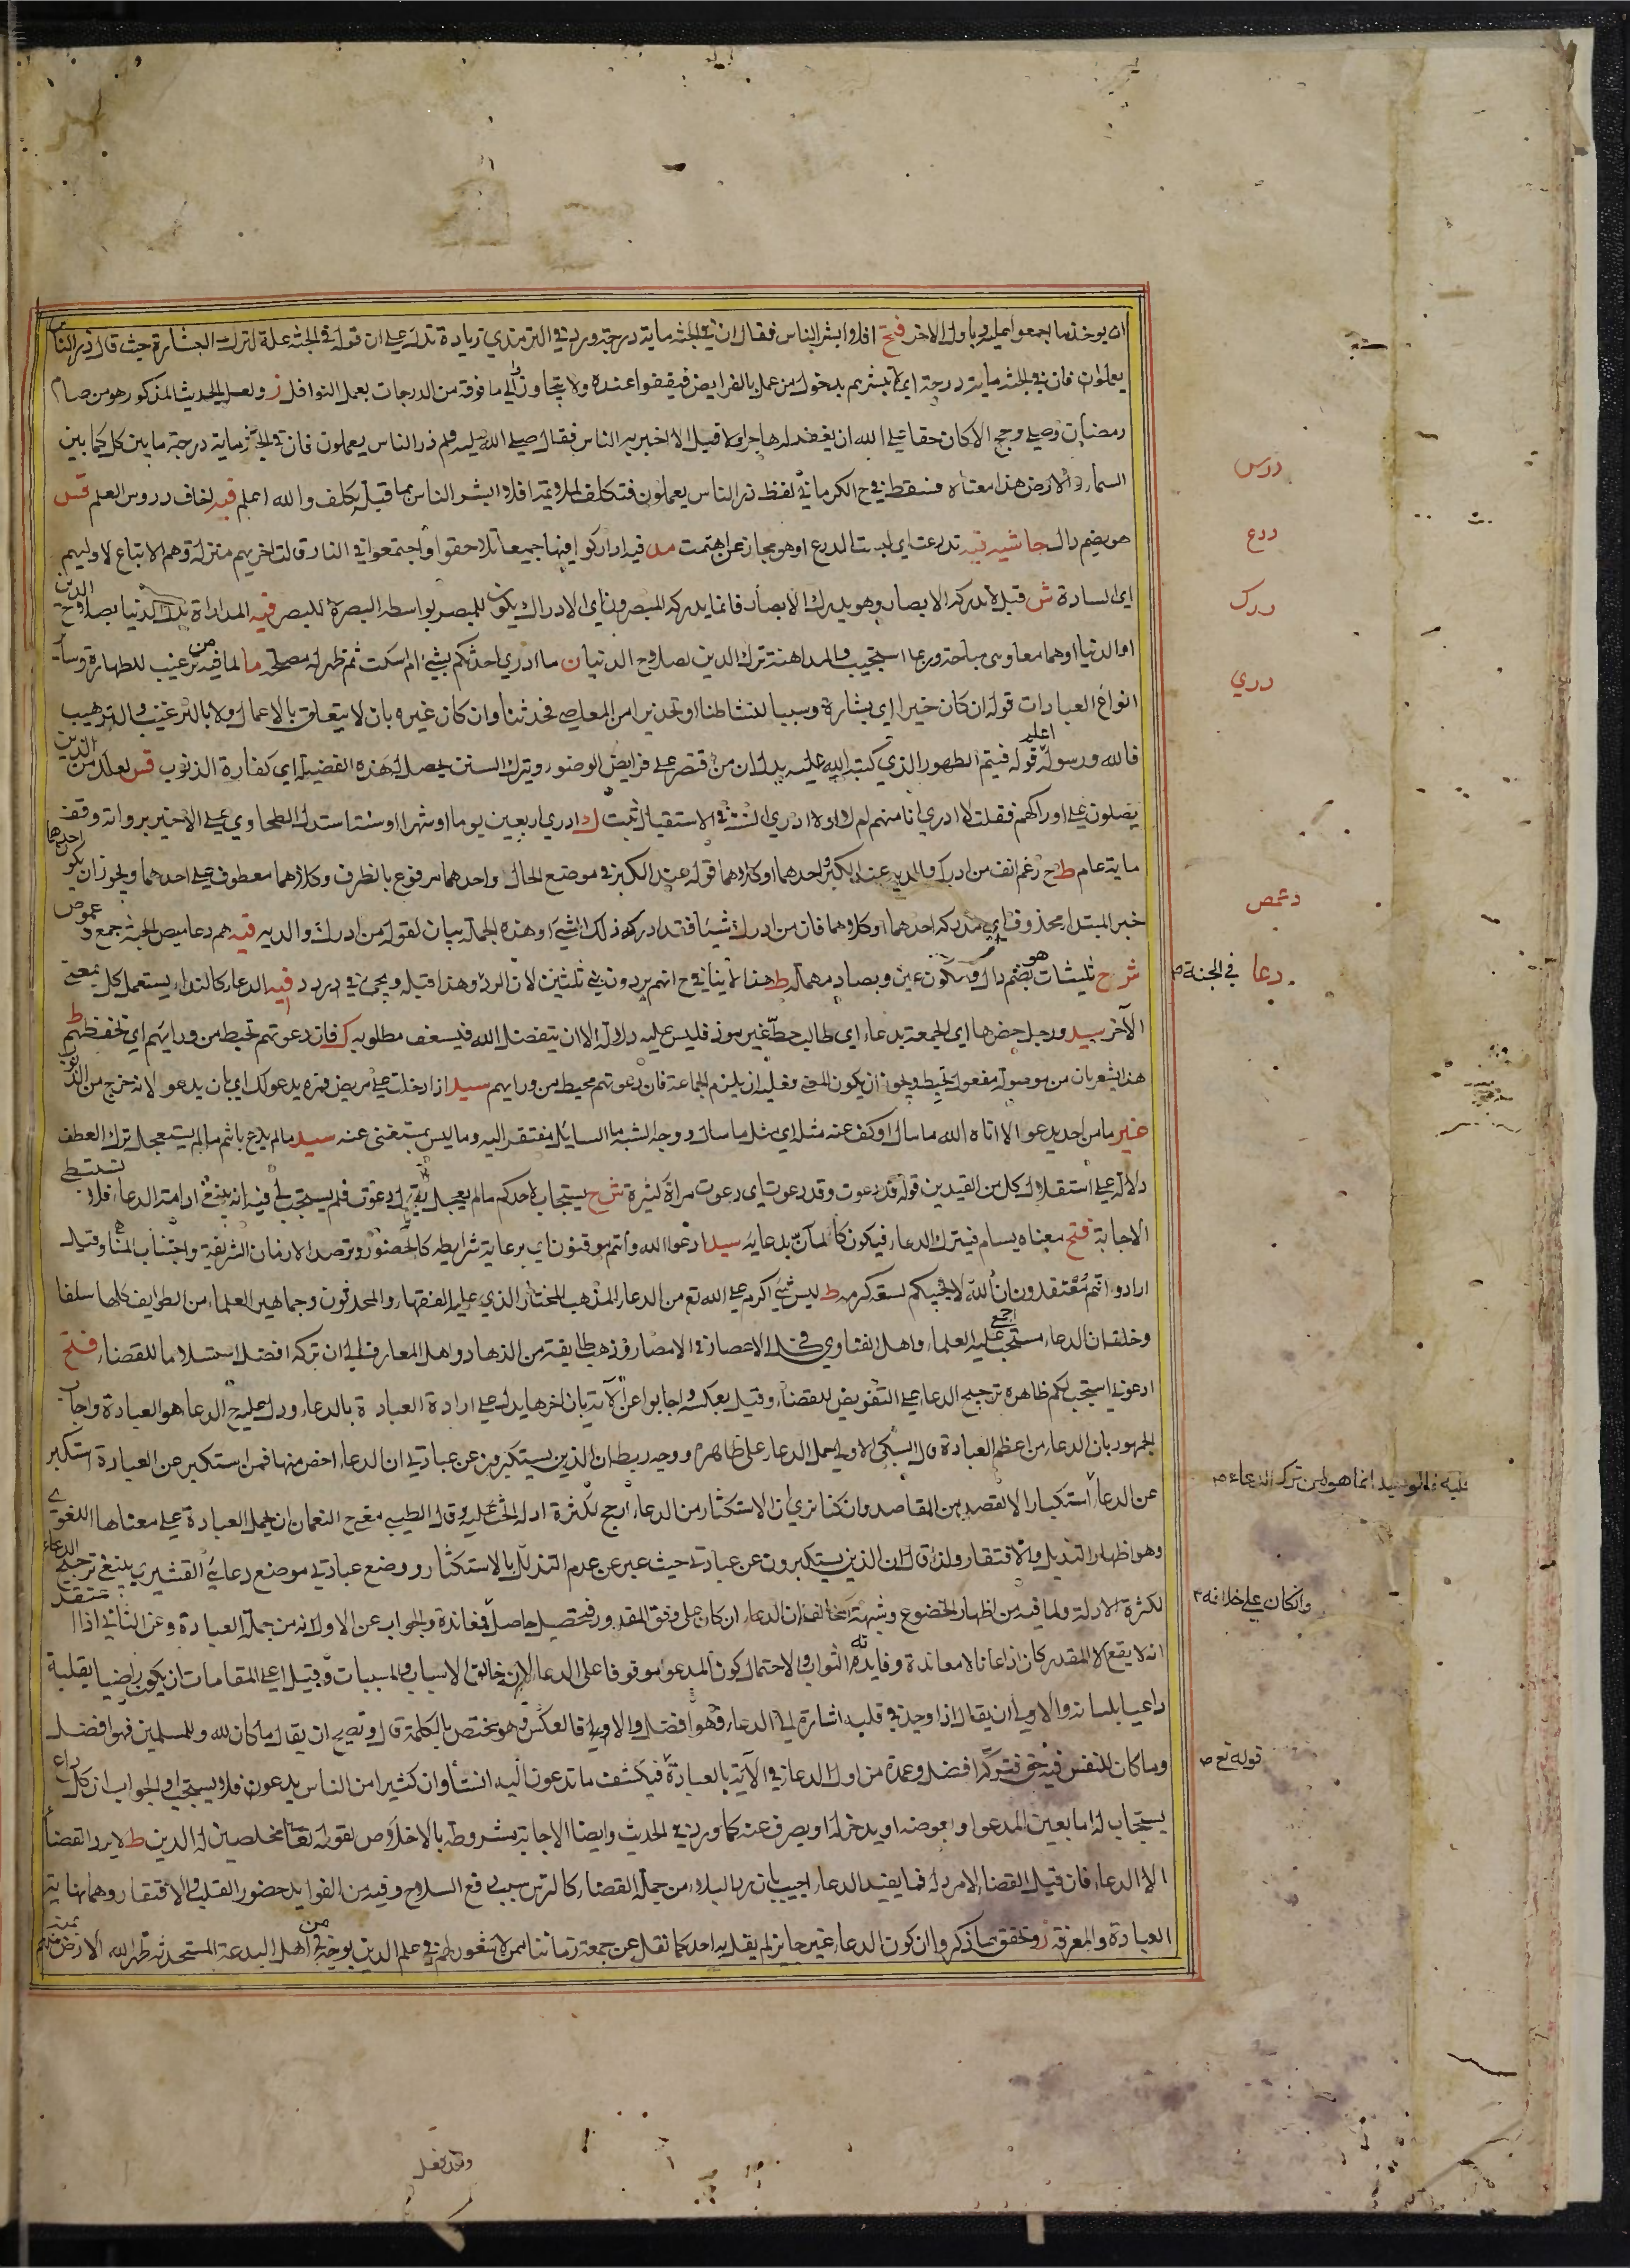 ان يوخذ ما اجمعوا عليه وباول الاخر فتح افلا ابشر الناس فقال ان في الجنة ماية درجة ورد في الترمذي زيادة تدل على ان قوله في الجنة علة لترك البشارة حيث قال ذر الناس
يعملون فان في الجنة ماية درجة اي لا تبشرهم بدخول من عمل بالفرايض فيقفوا عنده ولا يتجاوز الى ما فوقه من الدرجات بعمل النوافل ز ولعل الحديث المذكور هو من صام
رمضان وصلى وحج الا كان حقا على الله ان يغفر له هاجر او لا قيل الا اخبر به الناس فقال صلى الله عليه وسلم ذر الناس يعملون فان في الجنة ماية درجة ما بين كل كما بين
السماء والارض هذا معناه فسقط في ح الكرماني لفظ ذر الناس يعملون فتكلف افلا ابشر الناس بما قيل تكلف والله اعلم فيه لخاف دروس العلم قس
هو بضم دال حاشيه فيه تدرعت اي لبست الدرع او هو مجاز عن اهتمت مد فيه اداركوا فيها جميعا تلاحقوا واجتمعوا في النار قالت اخريهم منزلة وهم الاتباع لاوليهم
اي السادة ش قيل لا تدركه الابصار وهو يدرك الابصار فانما يدركه المبصرون اي الادراك يكون للمبصر بواسطة البصر لا للبصر فيه المداراة بذل الدنيا بصلاح الدين
او الدنيا او هما معا وهي مباحة وربما استحبت والمداهنة ترك الدين بصلاح الدنيا ن ما ادري احدثكم بشيء ام اسكت ثم ظهر له مصلحة ما لما فيه من ترغيب للطهارة وساير
انواع العبادات قوله ان كان خيرا اي بشارة وسببا لنشاطنا او تحذيرا من المعاصي فحدثنا وان كان غيره بان لا يتعلق بالاعمال ولا بالترغيب والترهيب
فالله ورسوله اعلم قوله فيتم الطهور الذي كتبه الله عليه يدل ان من اقتصر على فرايض الوضوء وترك السنن يحصل له هذه الفضيلة اي كفارة الذنوب قس لعلك من الذين
يصلون على اوراكهم فقلت لا ادري انا منهم ام لا او لا ادري السنة في الاستقبال ثبت ك ادري اربعين يوما او شهرا او سنة استدل الطحاوي على الاخير برواته وقف
ماية عام ط ح رغم انف من ادرك والديه عند الكبر احدهما او كلاهما قوله عند الكبر في موضع الحال واحدهما مرفوع بالظرف وكلاهما معطوف على احدهما ويجوز ان يكون احدهما
خبر المبتدا محذوف اي مدركه احدهما او كلاهما فان من ادرك شيئا فقد ادركه ذلك الشيء وهذه الجملة بيان لقوله من ادرك والديه فيه هم دعاميص الجنة جمع دعموص
ش ح ثليثات هو بضم دال وسكون عين وبصاد مهملة ط هذا لا ينافي ح انهم يردون بني ثلثين لان الرد وهذا قبله ويجيء في د ر د د فيه الدعاء كالنداء يستعمل كل بمعنى
الاخر سيد ورجل حضرها اي الجمعة بدعاء اي طالب حظ غير موذ فليس عليه ولا له الا ان يتفضل الله فيسعف مطلوبه ك فان دعوتهم تحيط من ورايهم اي تحفظهم ط
هذا يشعر بان من موصول مفعول تحيط ويجوز ان يكون المعنى فعليه ان يلزم الجماعة فان دعوتهم محيط من ورايهم سيد اذا دخلت على مريض فمره يدعو لك اي بان يدعو لانه خرج من الذنوب
غير ما من احد يدعو الا اتاه الله ما سال او كف عنه مثله اي مثل ما سال ووجه الشبه ما السايل مفتقر اليه وما ليس بمستغنى عنه سيد ما لم يدع باثم ما لم يستعجل ترك العطف
دلالة على استقلال كل من القيدين قوله قد دعوت وقد دعوت اي دعوت مرارا كثيرة ش ح يستجاب لاحدكم ما لم يعجل يقول دعوت فلم يستجب لي فيه انه ينبغي ادامة الدعاء فلا تستبطي
الاجابة فتح معناه يسام فيترك الدعاء فيكون كالمان بدعايه سيد ادعوا الله وانتم موقنون اي برعاية شرايطه كالحضور وترصد الازمان الشريفة واجتناب المناهي وقيل
اراد وانتم معتقدون ان الله لا يخيبكم لسعة كرمه ط ليس شيء اكرم على الله تع من الدعاء المذهب المختار الذي عليه الفقهاء والمحدثون وجماهير العلماء من الطوايف كلها سلفا
وخلفا ان الدعاء مستحب اجمع عليه العلماء واهل الفتاوى في كل الاعصار في الامصار وذهب طايفة من الزهاد واهل المعارف الى ان تركه افضل استسلاما للقضاء فتح
ادعوني استجب لكم ظاهره ترجيح الدعاء على التفويض للقضاء وقيل بعكسه واجابوا عن الاية بان اخرها يدل على ارادة العبادة بالدعاء ودل عليه ح الدعاء هو العبادة واجاب
الجمهور بان الدعاء من اعظم العبادة قال السبكي الاولى حمل الدعاء على ظاهره ووجه ربطه ان الذين يستكبرون عن عبادتي ان الدعاء اخص منها فمن استكبر عن العبادة استكبر
عن الدعاء استكبارا لا لقصد من المقاصد وان كنا نرى ان الاستكثار من الدعاء ارجح لكثرة ادلة الحث عليه وقال الطيبي معنى ح النعمان ان يحمل العبادة على معناها اللغوي
وهو اظهار التذلل والافتقار ولذا قال ان الذين يستكبرون عن عبادتي حيث عبر عن عدم التذلل بالاستكثار ووضع عبادتي موضع دعاي القشيري ينبغي ترجيح الدعاء
لكثرة الادلة ولما فيه من اظهار الخضوع وشبهة المخالف ان الدعاء ان كان على وفق المقدور فتحصيل حاصل والا فمعاندة والجواب عن الاول انه من جملة العبادة وعن الثاني اذا اعتقد
انه لا يقع الا المقدر كان اذعانا لا معاندة وفايدته الثواب والاحتمال كون المدعو موقوفا على الدعاء لانه خالق الاسباب والمسببات وقيل اعلى المقامات ان يكون راضيا بقلبه
داعيا بلسانه والاولى ان يقال اذا وجد في قلبه اشارة الى الدعاء فهو افضل والا فبالعكس وهو مختص بالكلمة قال وتصح ان يقال ما كان لله وللمسلمين فهو افضل
وما كان للنفس فيه حق فتركه افضل وعمدة من اول الدعاء في الاية بالعبادة فيكشف ما تدعون اليه ان شاء وان كثيرا من الناس يدعون فلا يستجاب والجواب ان كل داع
يستجاب له اما بعين المدعو او بعوضه او يدخر له او يصرف عنه كما ورد في الحديث وايضا الاجابة مشروطة بالاخلاص لقوله تعالى مخلصين له الدين ط لا يرد القضاء
الا الدعاء فان قيل القضاء لا مرد له فما يفيد الدعاء اجيب بان رد البلاء من جملة القضاء كالترس سبب دفع السلاح وفيه من الفوايد حضور القلب والافتقار وهما نهاية
العبادة والمعرفة ز وتحقق بما ذكروا ان كون الدعاء غير جايز لم يقل به احد كما نقل عن جمعة زماننا ممن لا شعور لهم في علم الدين يوخذ من اهل البدعة المستحدثة طهر الله الارض منهم بمنه
درس
درع
درك
دري
دعمص
دعا
في الجنة ص
وان كان على خلافه
قوله تع ص